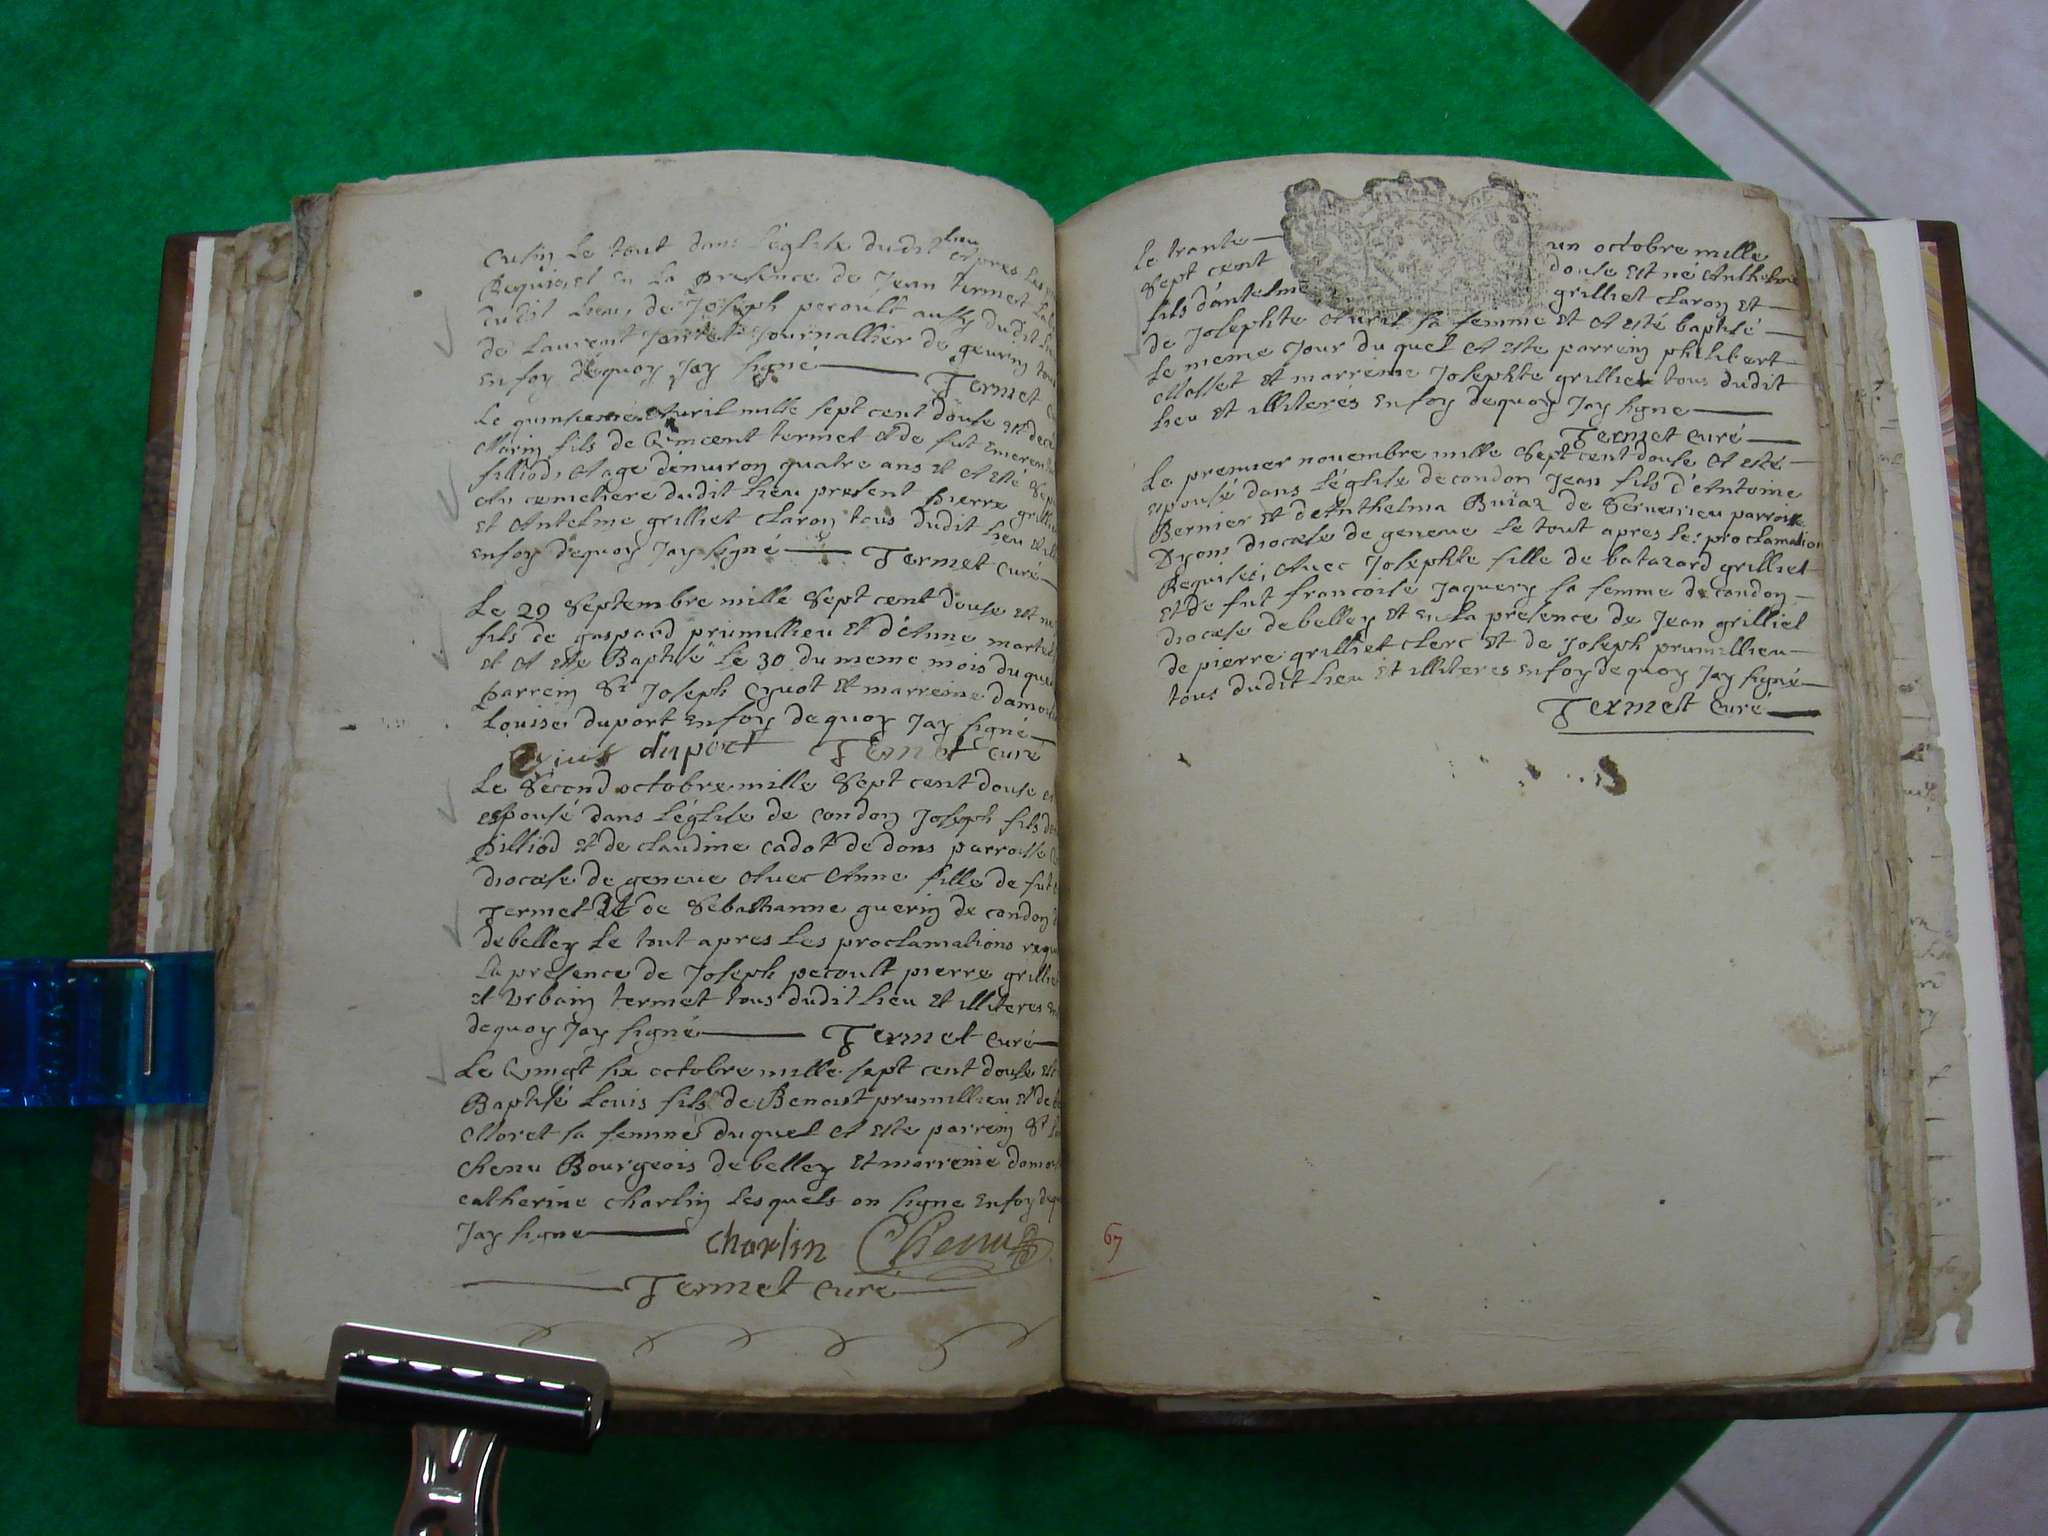 cusin le tout dans léglise dudit lieu apres les
Requises en la presence de Jean termet
dudit lieu, de Joseph peroult aussy dudit lieu
de Laurent Journallier de geurin tous
en foy dequoy Jay signé Termet
Le quinsieme Avril mille sept cent douse est decé
Marin fils de Vincent termet et de fut Emeren
filliod, Aage d'enuiron quatre ans et A esté sep
Au cemetiere dudit lieu present pierre grilliet
et Antelme grilliet claron tous dudit lieu et ill
en foy dequoy Jay signé Termet curé
Le 29 Septembre mille Sept cent douse est né
fils de gaspard prumillieu et d'Anne martel
et A este Baptisé le 30 du meme mois duquel
parrein Sr Joseph Cyuot et marreine damois
Louise duport en foy de quoy Jay signé
duport Termet curé
Le Second octobre mille Sept cent douse a
espousé dans léglise de condon Joseph fils de
pilliod et de claudine cadot de dons parroisse
diocæse de geneue Auec Anne fille de fut
Termet et de Sebastianne guerin de condon
de belley le tout apres les proclamations requ
la presence de Joseph pecoult pierre grilliet
et Vrbain termet tous dudit lieu et illiteres en
dequoy Jay signé Termet curé
Le Vingt six octobre mille sept cent douse est
Baptisé Louis fils de Benoist prumillieu et de
Moret sa femme duquel A este parrein Sr
chenu Bourgeois de belley et marreine damois
catherine charlin lesquels on signe en foy dequ
Jay signe charlin Chenu
Termet curé
le trante un octobre mille
Sept cent douse est né Anthelme
fils d'antelme grilliet claron et
de Josephte Auril sa femme et A esté baptisé
le meme Jour du quel A este parrein philibert
Mollet et marreine Josephte grilliet tous dudit
lieu et illiterés en foy dequoy Jay signe
Termet curé
Le premier nouembre mille Sept cent douse A esté
espousé dans léglise de condon Jean fils d'Antoine
Bernier et de Anthelma Buiaz de Seruerieu parroisse
Dyons diocæse de geneue le tout apres les proclamations
Requises, Auec Josephte fille de batazard grilliet
et de fut francoise Jaquery sa femme de condon
diocæse de belley et en la presence de Jean grilliet
de pierre grilliet clerc et de Joseph prumillieu
tous dudit lieu et illiteres en foy de quoy Jay signé
Termet curé
67